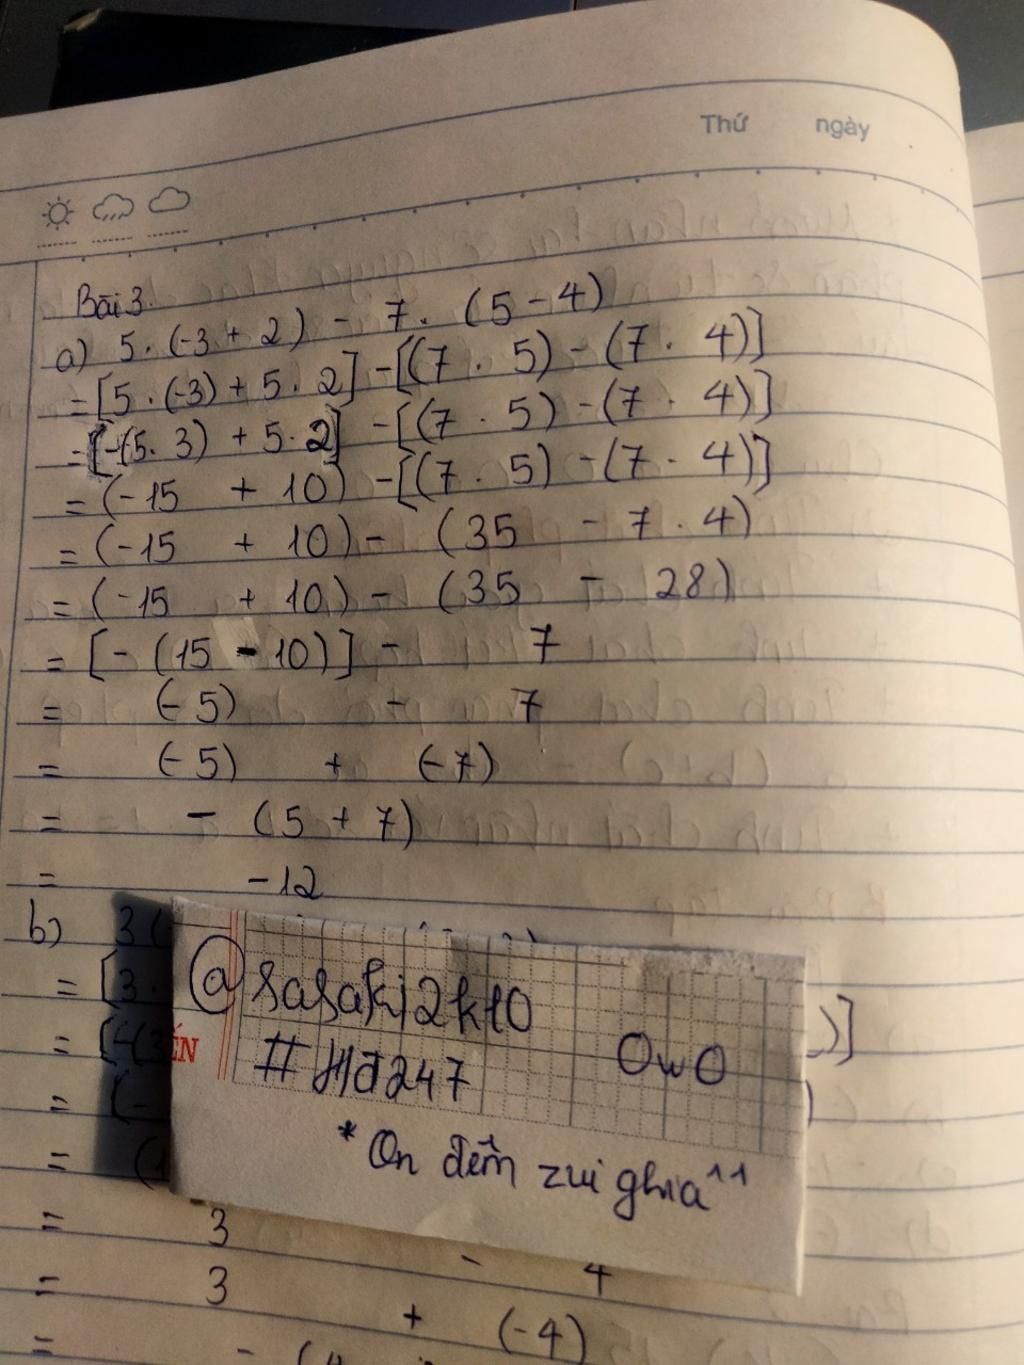 Thứ ngày
Bài 3.
a) 5 . (-3 + 2) - 7 . (5 - 4)
= [5 . (-3) + 5 . 2] - [(7 . 5) - (7 . 4)]
= [-(5 . 3) + 5 . 2] - [(7 . 5) - (7 . 4)]
= (-15 + 10) - [(7 . 5) - (7 . 4)]
= (-15 + 10) - (35 - 7 . 4)
= (-15 + 10) - (35 - 28)
= [- (15 - 10)] - 7
= (-5) - 7
= (-5) + (-7)
= - (5 + 7)
= -12
b) 3 (
= [3 .
= [-(3 )]
= (- )
= (1
@sasaki2k10
#Hđ247 OwO
ẾN
*On đêm zui ghia^^
= 3 - 4
= 3 + (-4)
= - (4